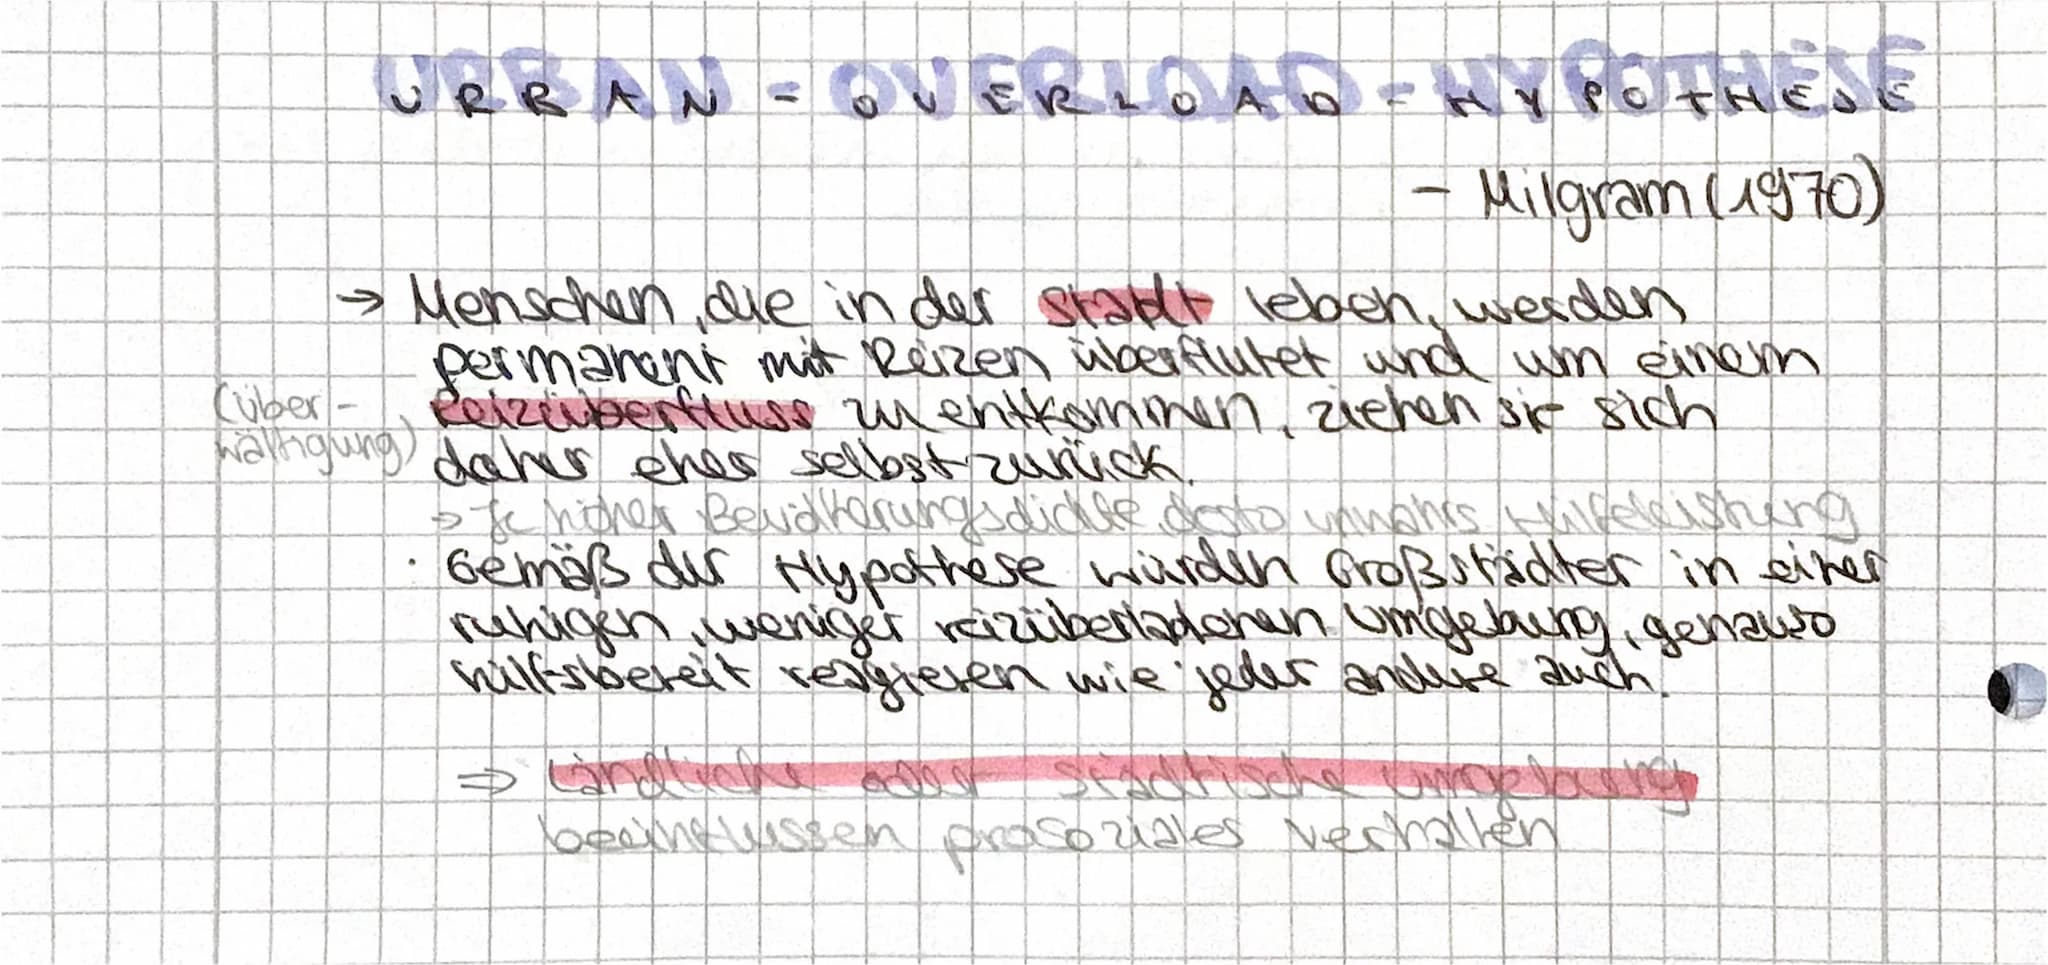 URBAN-OVERLOAD-HYPOTHESE
- Milgram (1970)
→ Menschen, die in der Stadt leben, werden
permanent mit Reizen überflutet und um einem
(Über-
Reizüberfluss zu entkommen, ziehen sie sich
wältigung)
daher eher selbst zurück.
→ Je höher Bevölkerungsdichte, desto Hilfeleistung
· Gemäß der Hypothese würden Großstädter in einer
ruhigen, weniger reizüberladenen Umgebung, genauso
hilfsbereit reagieren wie jeder andere auch.
⇒ Ländliche oder städtische Umgebung
beeinflussen prosoziales Verhalten